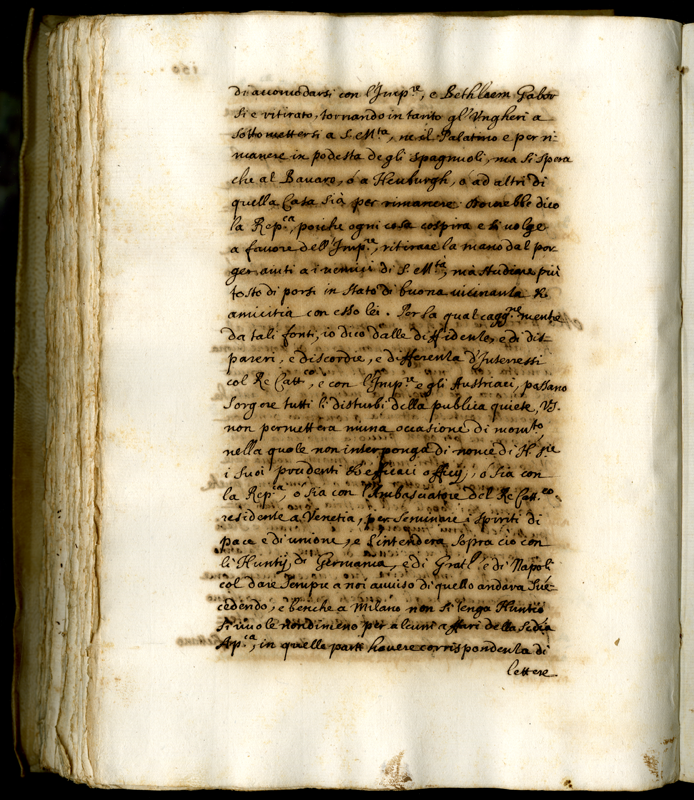 di accomodarsi con l'Imp.re, e Bethleem Gabor
si e ritirato, tornando in tanto gl'Vngheri a
sottomettersi a S. M.ta, ne il Palatino e per ri=
manere in podesta degli spagnuoli, ma si spera
che al Bavaro, ó a Neuburgh, ó ad altri di
quella Casa sià per rimanere. dovrebbe dico
la Rep.ca, poiche ogni cosa cospira e si volge
a favore dell'Imp.re, ritirare la mano dal por
ger aiuti a i nemici di S. M.tà, mà studiare più
tosto di porsi in stato di buona vicinanza et
amicitia con esso lei. Per la qual cagg.e mente
da tali fonti, io dico dalle diffidenze, e di dis=
pareri, e discordie, e differenza d'Interessi
col Re Catt.co, e con l'Imp.re e gli Austriaci, possano
sorgere tutti li disturbi della publica quiete, VS.
non permetterà niuna occasione di
nella quale non interponga di nome di N. S.re
i suoi prudenti et efficaci officij, ó sia con
la Rep.ca, ó sia con l'Ambasciatore del Re Catt.co
residente a Venetia, per seminare i spiriti di
pace e di unione, e s'intenderà sopra ciò con
li Huntij di Germania, e di Gratz e di Napoli
col dare sempre a noi avviso di quello andarà suc=
cedendo, e benche a Milano non si tenga Huntio
si vuole nondimeno per alcuni affari della Sedia
Ap.ca, in quelle parti havere corrispondenza di
lettere